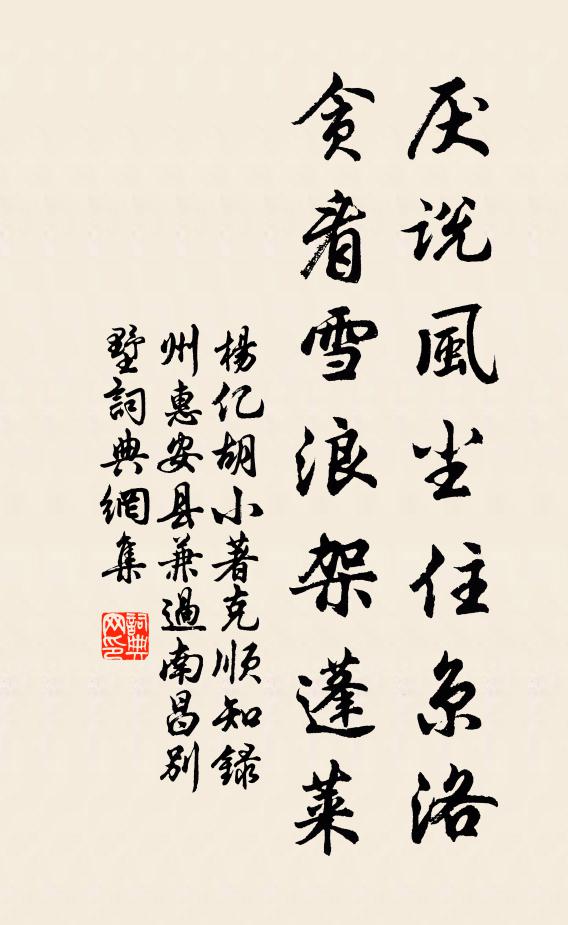 厌说風尘住京洛
貪看雪浪架蓬莱
楊亿胡小著克順知録
州惠安县兼過南昌別
墅詞典網集
詞典网印